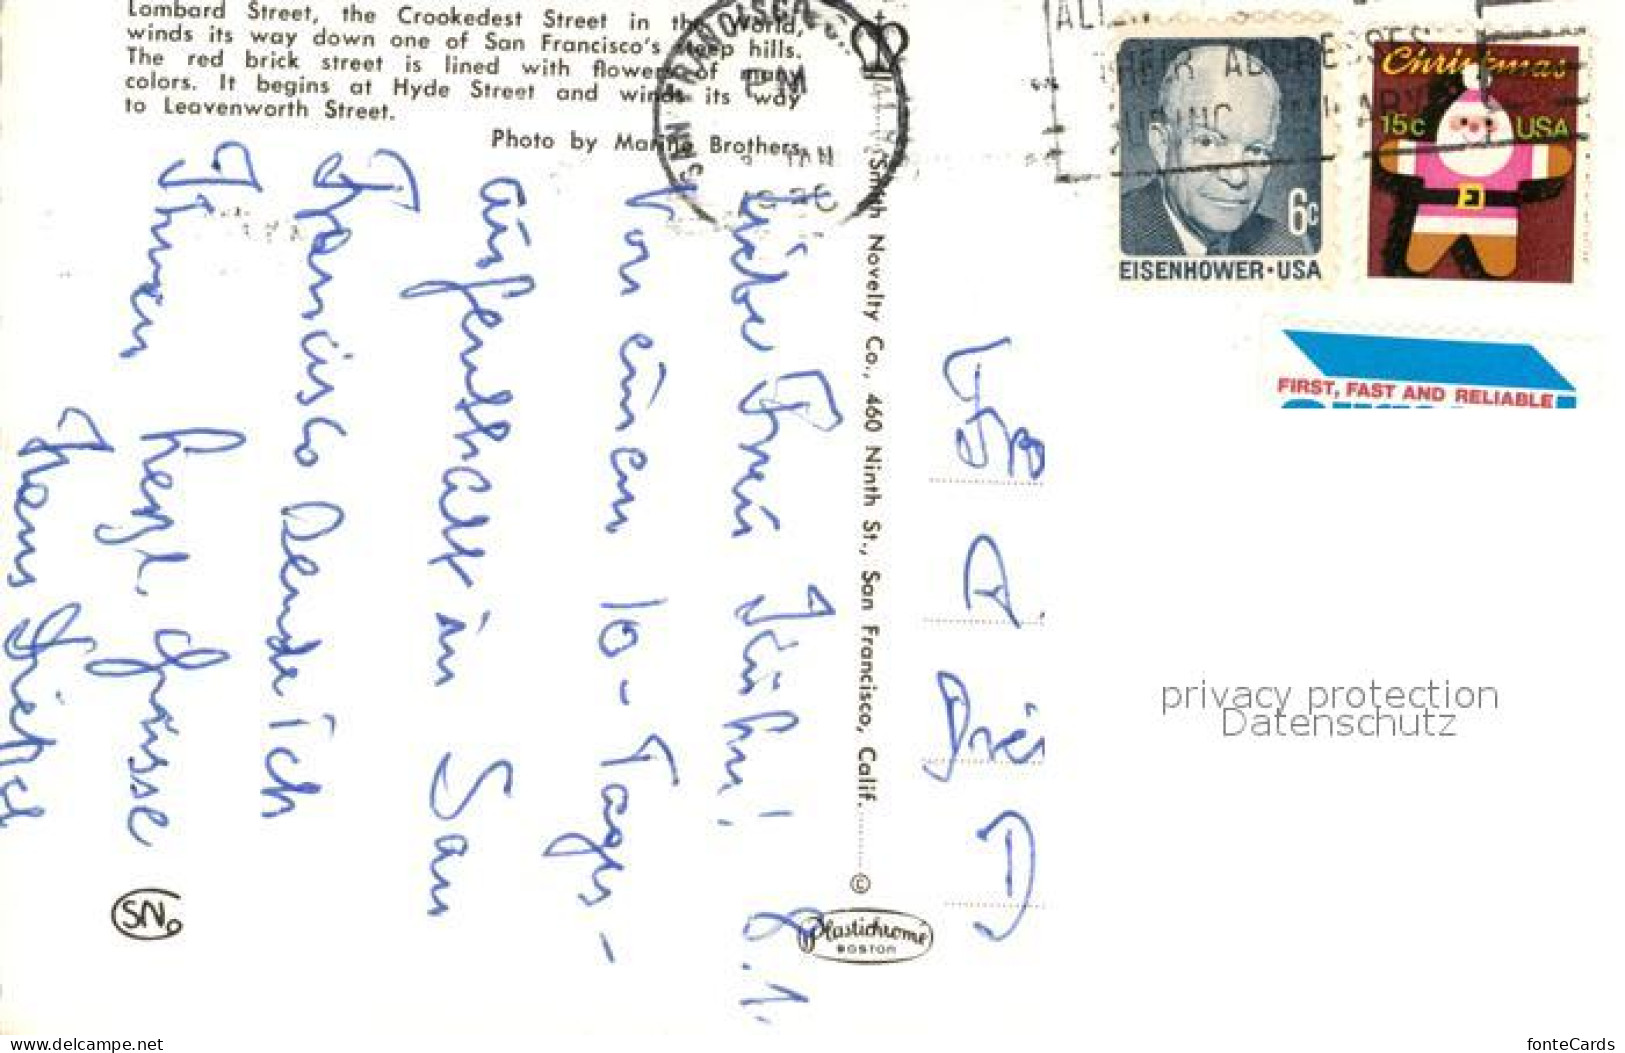 Lombard Street, the Crookedest Street in the World,
winds its way down one of San Francisco's steep hills.
The red brick street is lined with flowers of many
colors. It begins at Hyde Street and winds its way
to Leavenworth Street.
Photo by Marine Brothers
Smith Novelty Co., 460 Ninth St., San Francisco, Calif.
©
Plastichrome
BOSTON
SN
SAN FRANCISCO
PM
JAN
THEIR ADDRESSES
EISENHOWER·USA
6c
Christmas
15c USA
FIRST, FAST AND RELIABLE
Liebe Frau 6.1.
Von einem 10-Tages-
aufenthalt in San
Francisco sende ich
Ihnen herzl. Grüsse
D
privacy protection
Datenschutz
www.delcampe.net
fonteCards